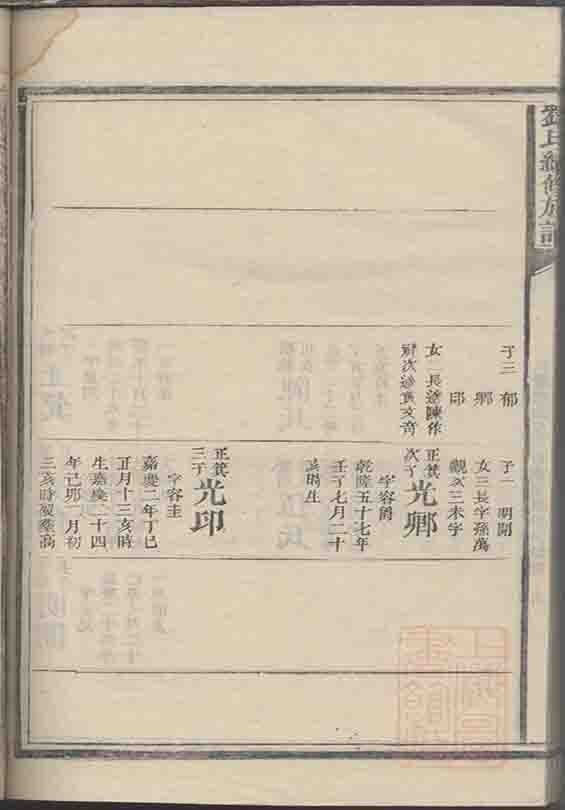 劉氏續修族譜
子三 郁
卿
印
女二長適陳作
次適袁文奇
子一 明開
女三長字孫萬
觀次三未字
正箕
次子
光卿
字容爵
乾隆五十七年
壬子七月二十
亥時生
正箕
三子
光印
字容圭
嘉慶二年丁巳
正月十三亥時
生嘉慶二十四
年己卯二月初
三亥時歿葬高